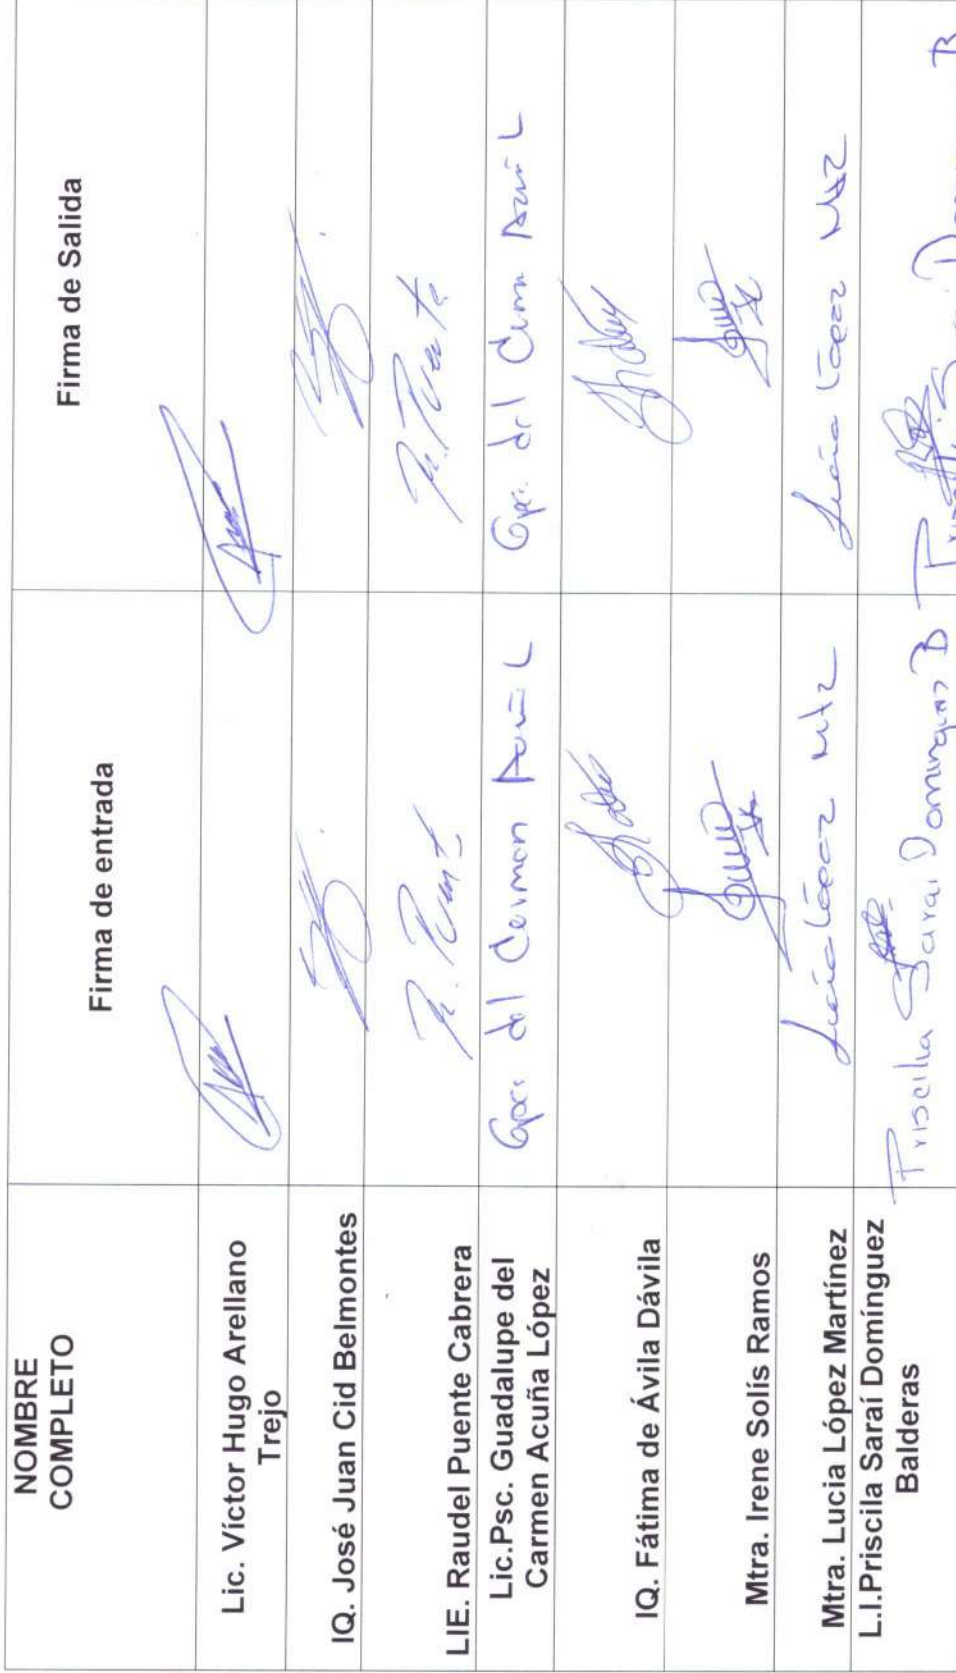 NOMBRE
COMPLETO
Firma de entrada
Firma de Salida
Lic. Víctor Hugo Arellano
Trejo
IQ. José Juan Cid Belmontes
LIE. Raudel Puente Cabrera
R. Puente
Lic.Psc. Guadalupe del
Carmen Acuña López
del Carmen Acuña L
IQ. Fátima de Ávila Dávila
Mtra. Irene Solís Ramos
Mtra. Lucia López Martínez
Lucía López Mtz
Lucía López Mtz
L.I.Priscila Saraí Domínguez
Balderas
Priscilla Sarai Dominguez B